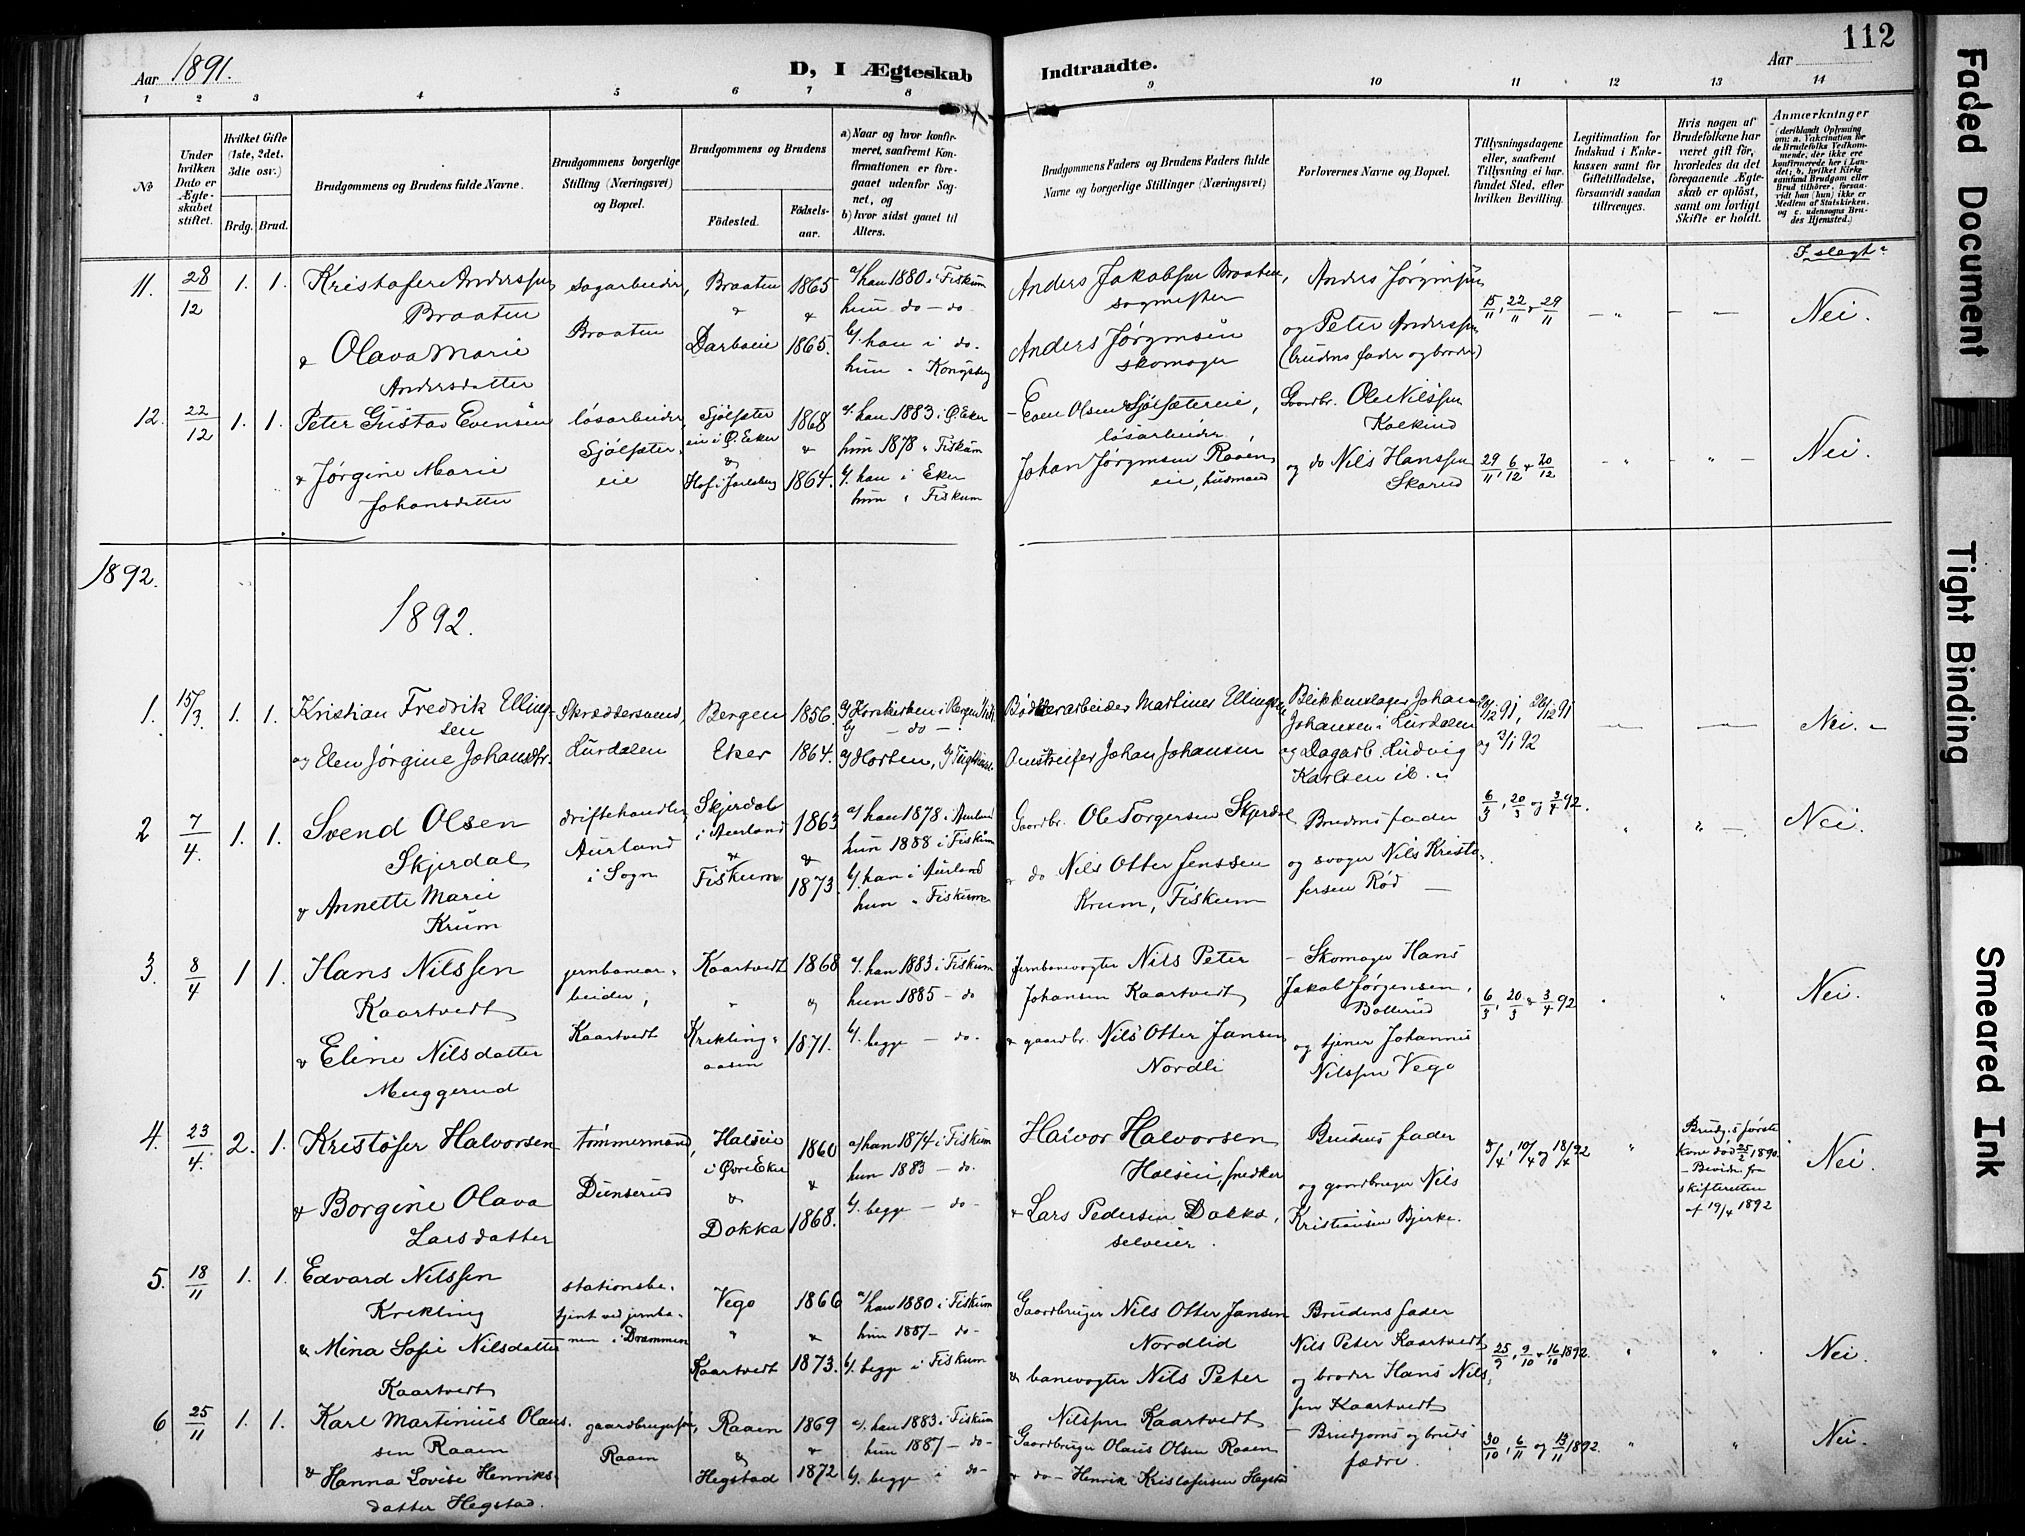 Aar 1891.
D, I Ægteskab Indtraadte.
Aar
112
1 2 3 4 5 6 7 8 9 10 11 12 13 14
No
Under hvilken Dato er Ægteskabet stiftet.
Hvilket Gifte (1ste, 2det, 3die osv.)
Brdg. Brud.
Brudgommens og Brudens fulde Navne.
Brudgommens borgerlige Stilling (Næringsvei) og Bopæl.
Brudgommens og Brudens
Födested. Födselsaar.
a) Naar og hvor konfirmeret, saafremt Konfirmationen er foregaaet udenfor Sognet, og
b) hvor sidst gaaet til Alters.
Brudgommens Faders og Brudens Faders fulde Navne og borgerlige Stillinger (Næringsvei)
Forlovernes Navne og Bopæl.
Tillysningsdagene eller, saafremt Tillysning ei har fundet Sted, efter hvilken Bevilling.
Legitimation for Indskud i Enkekassen samt for Giftetilladelse, forsaavidt saadan tiltrænges.
Hvis nogen af Brudefolkene har været gift för, hvorledes da det foregaaende Ægteskab er oplöst, samt om lovligt Skifte er holdt.
Anmærkninger
(deriblandt Oplysning om: a. Vakcination for de Brudefolks Vedkommende, der ikke ere konfirmerede her i Landet; b. hvilket Kirkesamfund Brudgom eller Brud tilhörer, forsaavidt han (hun) ikke er Medlem af Statskirken, og c. udensogns Brudes Hjemsted.)
I slegt?
11. 28/12 1. 1.
Kristofer Anderssen
Braaten
& Olava Marie
Andersdatter
sagarbeider,
Braaten
Braaten 1865
& &
Darboeie 1865.
a/ han 1880 i Fiskum
hun do - do.
b/. han i do.
hun " Kongsberg
Anders Jakobsen Braaten,
sagmester
Anders Jørgensen
skomager
Anders Jørgensen
og Peter Anderssen
(brudens fader og broder)
15/11, 22/11 & 29/11
Nei.
12. 22/12 1. 1.
Peter Gustav Evensen
& Jørgine Marie
Johansdatter
løsarbeider
Sjølsætereie
Sjølsæter
eie i Ø. Eker 1868
& &
Hof i Jarlsberg 1864.
a/. han 1883 i Ø. Eker
hun 1878 " Fiskum
b/. han i Eker
hun i Fiskum
- Even Olsen Sjølsætereie,
løsarbeider
Johan Jørgensen Raaen
eie, husmand
Gaardbr. Ole Nilssen
Kolkind
og do Nils Hanssen
Skarud
29/11, 6/12 & 20/12
Nei.
1892.
1892.
1. 15/3 1. 1.
Kristian Fredrik Ellingsen
og Elen Jørgine Johansdtr.
Skræddersvend,
Lurdalen
Bergen 1856.
Eker 1864.
a/ Korskirken i Bergen
b/ - do -
a/ Horten, b/ Tugthuset
Bødkerarbeider Martines Ellingsen
Omstreifer Johan Johansen
Blikkenslager Johan
Johansen i Lurdalen
og Dagarb. Ludvig
Karlsen ib.
20/12 91, 26/12 91
og 3/1 92
Nei.
2 7/4. 1. 1.
Svend Olsen
Skjerdal
& Annette Marie
Krum
driftehandler
Aurland
i Sogn
Skjerdal
i Aurland 1863
& &
Fiskum 1873.
a/ han 1878 i Aurland
hun 1888 i Fiskum
b/. han i Aurland
hun " Fiskum
Gaardbr. Ole Torgersen Skjerdal
& do Nils Otter Jenssen
Krum, Fiskum
Brudens fader
og svoger Nils Kristofersen Rød
6/3, 20/3 og 3/4 92.
Nei.
3. 8/4 1 1.
Hans Nilssen
Kaartvedt
& Eline Nilsdatter
Muggerud
jernbanearbeider,
Kaartvedt
Kaartvedt 1868
" &
Kreklingaasen 1871.
a/. han 1883 i Fiskum
hun 1885 - do
b/. begge - do.
Jernbanevogter Nils Peter
Johansen Kaartvedt
& gaardbr. Nils Otter Jansen
Nordli
- Skomager Hans
Jakob Jørgensen,
Bollerud
og tjener Johannes
Nilssen Vego
6/3, 20/3 & 3/4 92
Nei.
4. 23/4. 2. 1.
Kristofer Halvorsen
& Borgine Olava
Larsdatter
tømmermand,
Dunserud
Halseie
i Øvre Eker 1860
& &
Dokka 1868.
a/ han 1874 i Fiskum
hun 1883 - do.
b/. begge - do.
Halvor Halvorsen
Halseie, snedker
& Lars Pedersen Dokka,
selveier.
Brudens fader
og gaardbruger Nils
Kristiansen Bjerke.
3/4, 10/4 og 18/4 92
Brudg.s første
kone død 25/2 1890.
- Bevidn. fra
skifteretten
af 19/4 1892
Nei.
5. 18/11 1. 1.
Edvard Nilssen
Krekling
& Mina Sofie Nilsdatter
Kaartvedt
stationsbetjent ved jernbanen i Drammen
Vego 1866
" &
Kaartvedt 1873.
a/ han 1880 i Fiskum
hun 1887 - do -
b/. begge i Fiskum
Gaardbruger Nils Otter Jansen
Nordlid
& banevogter Nils Peter
Nilssen Kaartvedt
Brudens fader
Nils Peter Kaartvedt
og broder Hans Nilssen Kaartvedt
25/9, 9/10 & 16/10 1892
Nei.
6 25/11 1. 1.
Karl Martinius Olaussen Raaen
& Hanna Lovise Henriksdatter Hegstad.
gaardbrugersøn,
Raaen
Raaen 1869
& &
Hegstad 1872
a/. han 1883 i Fiskum
hun 1887 - do -
b/. begge i do -
- Gaardbruger Olaus Olsen Raaen
& do - Henrik Kristofersen Hegstad
- Brudgoms og bruds
fædre.
30/10, 6/11 og 13/11 1892.
Nei.
Faded Document
Tight Binding
Smeared Ink